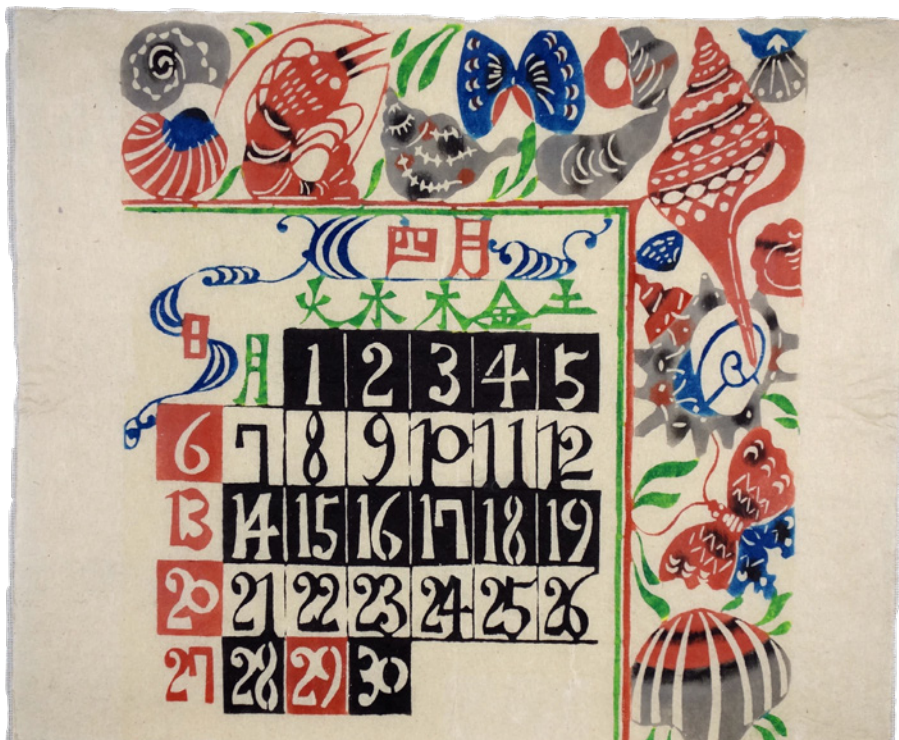 四月
日 月 火 水 木 金 土
1 2 3 4 5
6 7 8 9 10 11 12
13 14 15 16 17 18 19
20 21 22 23 24 25 26
27 28 29 30